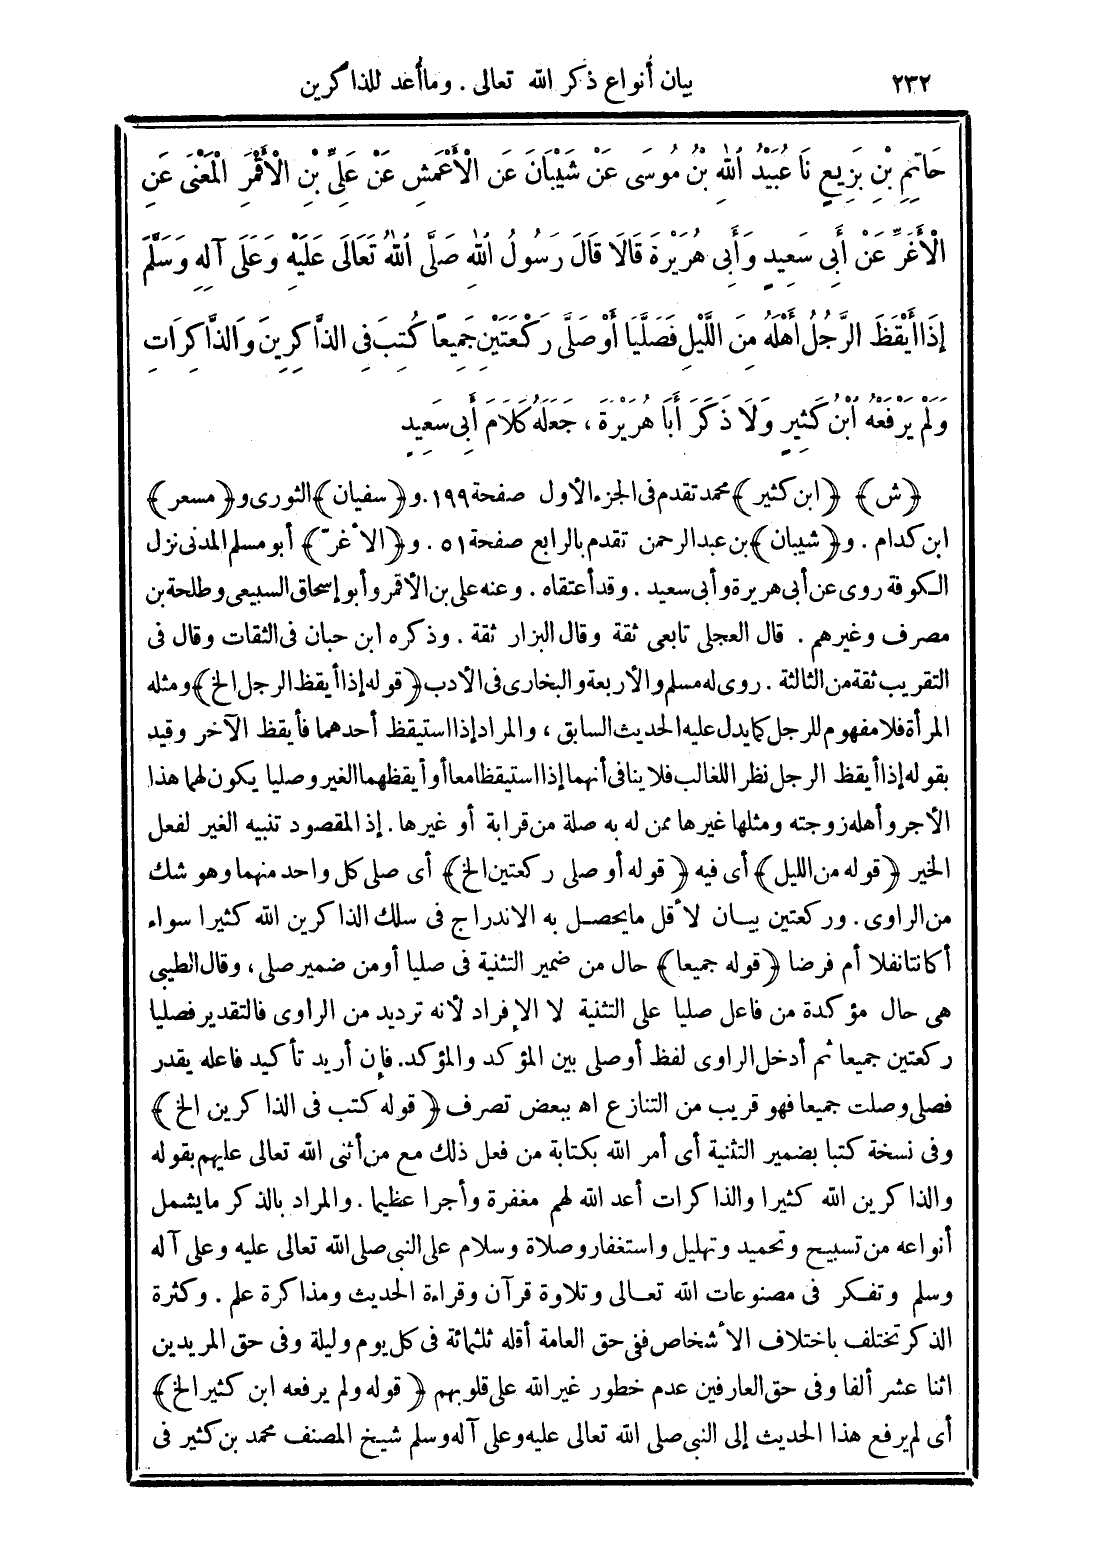 ٢٣٢ بيان أنواع ذكر الله تعالى . وما أعد للذاكرين
حَاتِمِ بْنِ بَزِيعٍ نَا عُبَيْدُ اللهِ بْنُ مُوسَى عَنْ شَيْبَانَ عَنِ الْأَعْمَشِ عَنْ عَلِىِّ بْنِ الْأَقْمَرِ الْمَعْنَى عَنِ
الْأَغَرِّ عَنْ أَبِى سَعِيدٍ وَأَبِى هُرَيْرَةَ قَالَا قَالَ رَسُولُ اللهِ صَلَّى اللهُ تَعَالَى عَلَيْهِ وَعَلَى آلِهِ وَسَلَّمَ
إِذَا أَيْقَظَ الرَّجُلُ أَهْلَهُ مِنَ اللَّيْلِ فَصَلَّيَا أَوْ صَلَّى رَكْعَتَيْنِ جَمِيعًا كُتِبَ فِى الذَّاكِرِينَ وَالذَّاكِرَاتِ
وَلَمْ يَرْفَعْهُ ابْنُ كَثِيرٍ وَلَا ذَكَرَ أَبَا هُرَيْرَةَ ، جَعَلَهُ كَلَامَ أَبِى سَعِيدٍ
﴿ش﴾ ﴿ابن كثير﴾ محمد تقدم فى الجزء الأول صفحة ١٩٩. و﴿سفيان﴾ الثورى و﴿مسعر﴾
ابن كدام . و﴿شيبان﴾ بن عبد الرحمن تقدم بالرابع صفحة ٥١ . و﴿الأغرّ﴾ أبو مسلم المدنى نزل
الكوفة روى عن أبى هريرة وأبى سعيد . وقد أعتقاه . وعنه على بن الأقمر وأبو إسحاق السبيعى وطلحة بن
مصرف وغيرهم . قال العجلى تابعى ثقة وقال البزار ثقة . وذكره ابن حبان فى الثقات وقال فى
التقريب ثقة من الثالثة . روى له مسلم والأربعة والبخارى فى الأدب ﴿قوله إذا أيقظ الرجل الخ﴾ ومثله
المرأة فلا مفهوم للرجل كما يدل عليه الحديث السابق ، والمراد إذا استيقظ أحدهما فأيقظ الآخر وقيد
بقوله إذا أيقظ الرجل نظر اللغالب فلا ينافى أنهما إذا استيقظا معا أو أيقظهما الغير وصليا يكون لهما هذا
الأجر وأهله زوجته ومثلها غيرها ممن له به صلة من قرابة أو غيرها . إذ المقصود تنبيه الغير لفعل
الخير ﴿قوله من الليل﴾ أى فيه ﴿قوله أو صلى ركعتين الخ﴾ أى صلى كل واحد منهما وهو شك
من الراوى . وركعتين بيان لأقل ما يحصل به الاندراج فى سلك الذاكرين الله كثيرا سواء
أكانتا نفلا أم فرضا ﴿قوله جميعا﴾ حال من ضمير التثنية فى صليا أو من ضمير صلى ، وقال الطيبى
هى حال مؤكدة من فاعل صليا على التثنية لا الإفراد لأنه ترديد من الراوى فالتقدير فصليا
ركعتين جميعا ثم أدخل الراوى لفظ أو صلى بين المؤكد والمؤكد. فإن أريد تأكيد فاعله يقدر
فصلى وصلت جميعا فهو قريب من التنازع اه ببعض تصرف ﴿قوله كتب فى الذاكرين الخ﴾
وفى نسخة كتبا بضمير التثنية أى أمر الله بكتابة من فعل ذلك مع من أثنى الله تعالى عليهم بقوله
والذاكرين الله كثيرا والذاكرات أعد الله لهم مغفرة وأجرا عظيما . والمراد بالذكر ما يشمل
أنواعه من تسبيح وتحميد وتهليل واستغفار وصلاة وسلام على النبى صلى الله تعالى عليه وعلى آله
وسلم وتفكر فى مصنوعات الله تعالى وتلاوة قرآن وقراءة الحديث ومذاكرة علم . وكثرة
الذكر تختلف باختلاف الأشخاص ففى حق العامة أقله ثلثمائة فى كل يوم وليلة وفى حق المريدين
اثنا عشر ألفا وفى حق العارفين عدم خطور غير الله على قلوبهم ﴿قوله ولم يرفعه ابن كثير الخ﴾
أى لم يرفع هذا الحديث إلى النبى صلى الله تعالى عليه وعلى آله وسلم شيخ المصنف محمد بن كثير فى